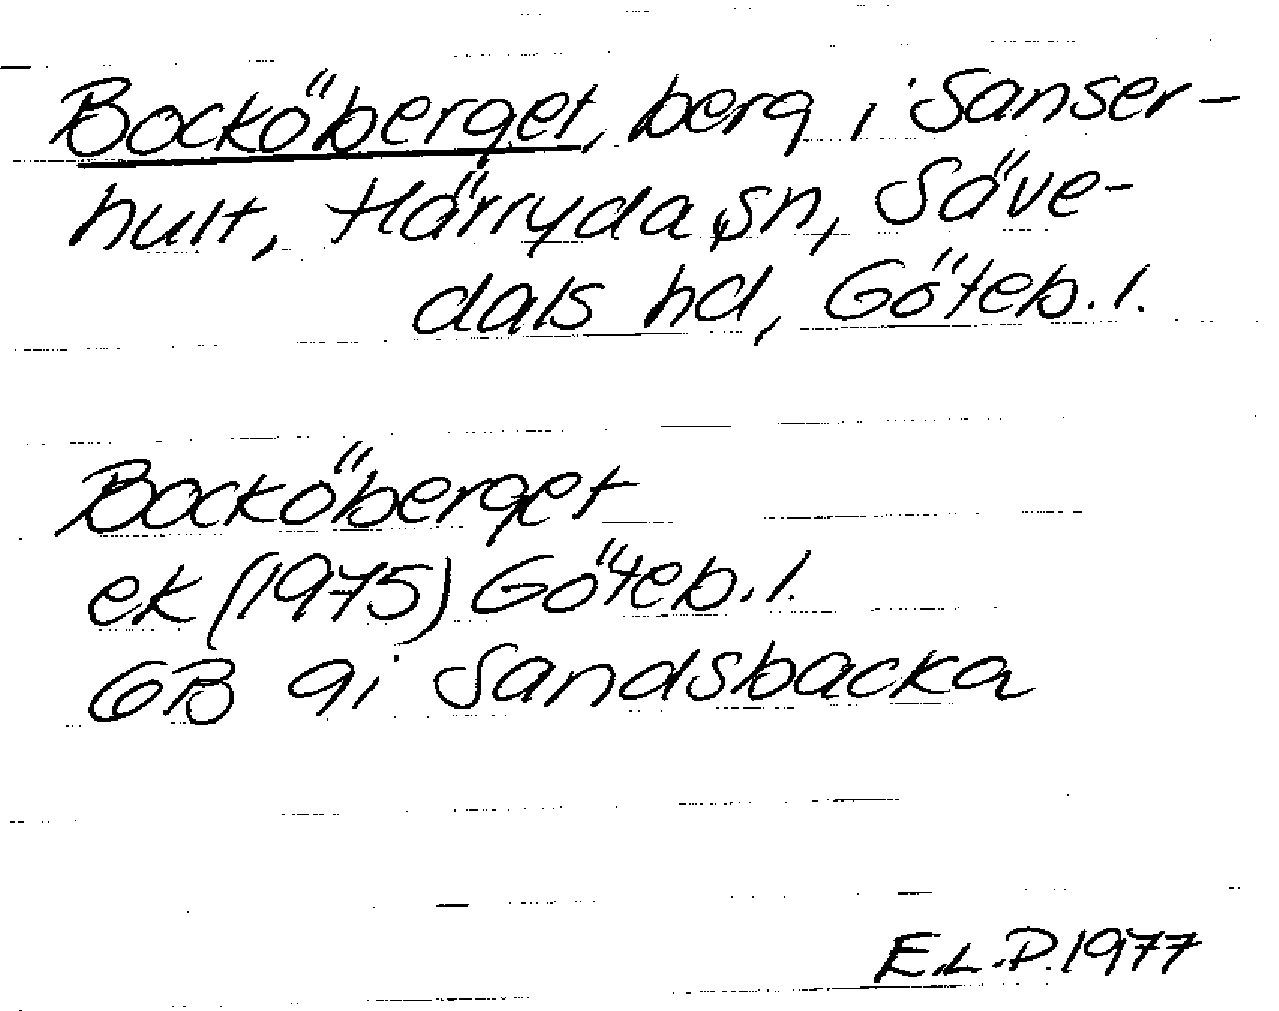 Bocköberget, berg i Sanser-
hult, Härryda sn, Säve-
dals hd, Göteb. l.
Bocköberget
ek (1975) Göteb. l.
GB 9i Sandsbacka
E.L.P. 1977